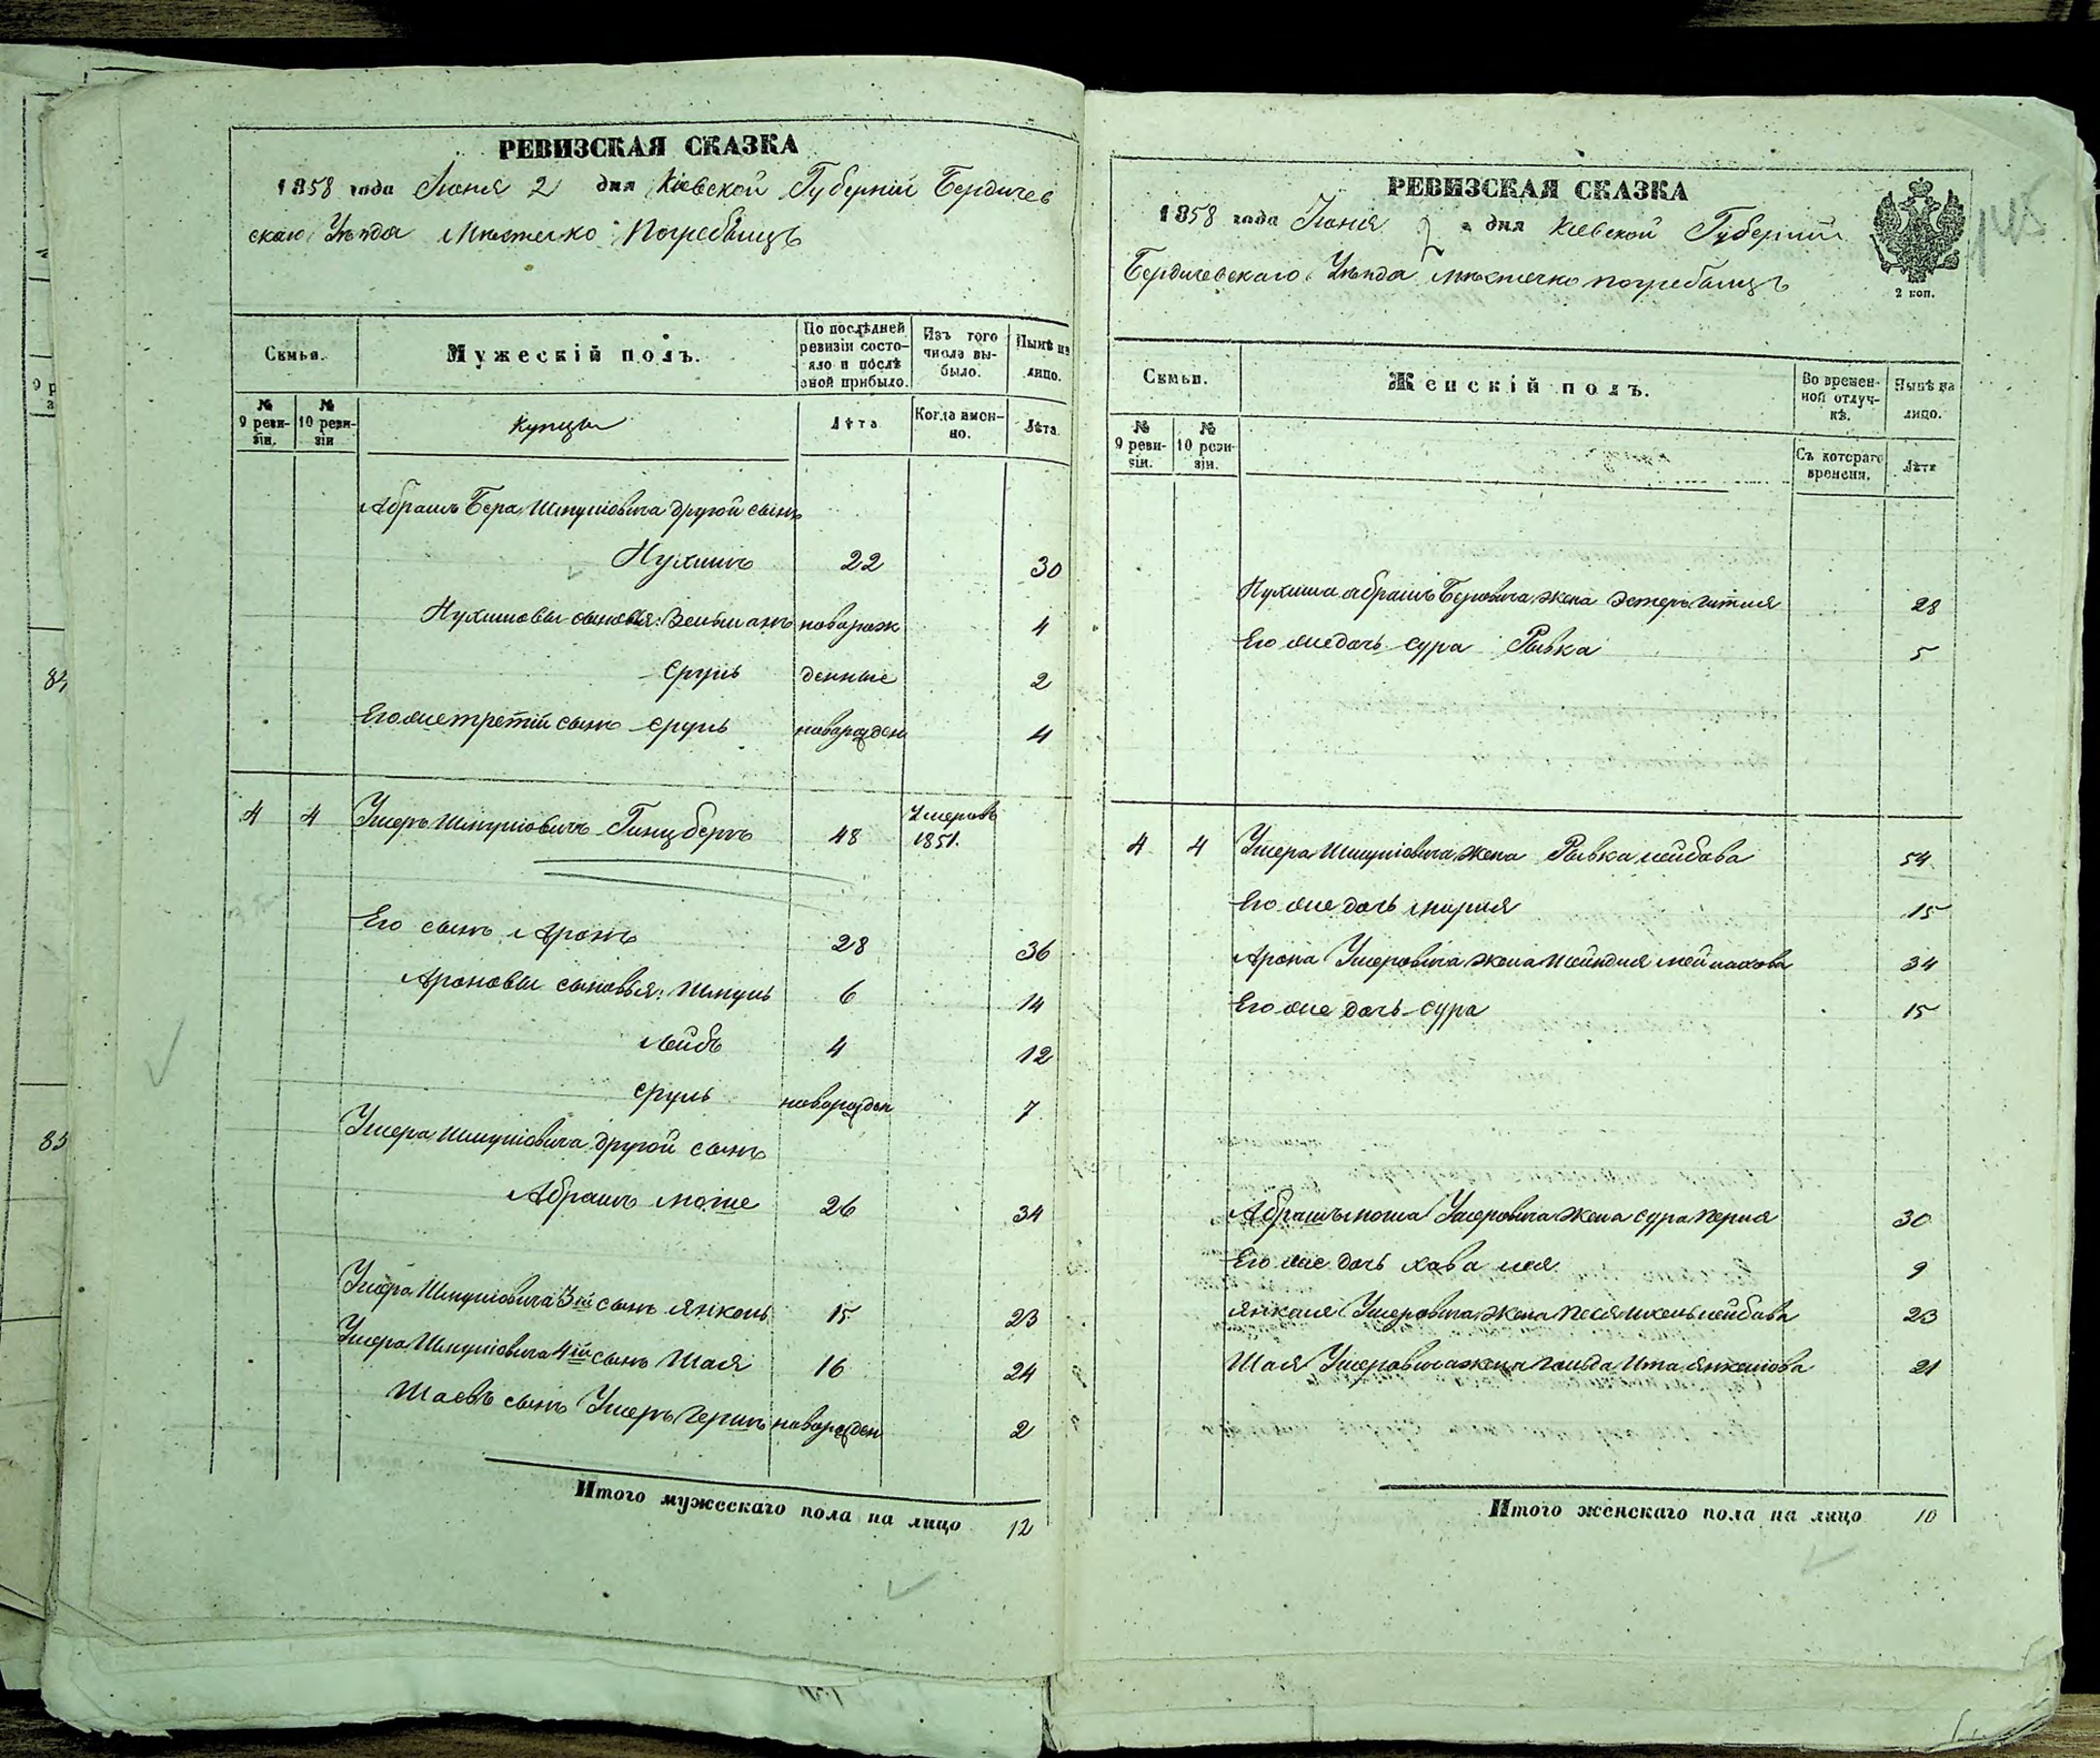 РЕВИЗСКАЯ СКАЗКА
1858 года Июня 2 дня Кіевской Губерніи Бердичев
скаго Уѣзда Мѣстечко Погребыщъ
Семьи.
Мужескій полъ.
По послѣдней
ревизіи состо-
яло и послѣ
оной прибыло.
Изъ того
числа вы-
было.
Нынѣ на
лицо.
№
9 реви-
зіи.
№
10 реви-
зіи
Купцы
Лѣта
Когда имен-
но.
Лѣта
Абрамъ Бера Шмуліовича другой сынъ
Нухимъ 22 30
Нухимовы сыновья: Зельманъ новорож 4
Сруль денные 2
Его же третій сынъ Сруль 4
4 4 Ушеръ Шмуліовичъ Гинцбергъ 48 Умеръ въ 1851.
Его сынъ Аронъ 28 36
Ароновы сыновья: Шмуль 6 14
Лейбъ 4 12
Сруль 7
Ушера Шмуліовича другой сынъ
Абрамъ Моше 26 34
Ушера Шмуліовича 3й сынъ Янкель 15 23
Ушера Шмуліовича 4й сынъ Шая 16 24
Шаевъ сынъ Ушеръ Гершъ 2
Итого мужескаго пола на лицо 12
РЕВИЗСКАЯ СКАЗКА
1858 года Июня 2 дня Кіевской Губерніи
Бердичевскаго Уѣзда мѣстечко погребыщъ
2 коп.
145
Семьи.
Женскій полъ.
Во времен-
ной отлуч-
кѣ.
Нынѣ на
лицо.
№
9 реви-
зіи.
№
10 реви-
зіи.
Съ котораго
времени.
Лѣта
Нухима Абрамъ Беровича жена Эстеръ Гитля 28
Его же дочь Сура Рывка 5
4 4 Ушера Шмуліовича жена Рывка Лейбова 54
Его же дочь 15
Арона Ушеровича жена 34
Его же дочь Сура 15
Абрамъ Моша Ушеровича жена Сура Перля 30
Его же дочь Хава Лея 9
Янкеля Ушеровича жена Лейбова 23
Шая Ушеровича жена Гольда Ита Янкелова 21
Итого женскаго пола на лицо 10